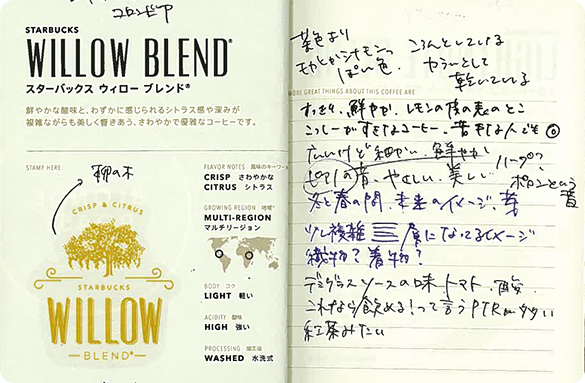 コロンビア
STARBUCKS
WILLOW BLEND®
スターバックス ウィロー ブレンド®
鮮やかな酸味と、わずかに感じられるシトラス感や深みが
複雑ながらも美しく響きあう、さわやかで優雅なコーヒーです。
STAMP HERE
柳の木
CRISP & CITRUS
STARBUCKS
WILLOW
BLEND®
FLAVOR NOTES 風味のキーワード
CRISP さわやかな
CITRUS シトラス
GROWING REGION 地域
MULTI-REGION
マルチリージョン
BODY コク
LIGHT 軽い
ACIDITY 酸味
HIGH 強い
PROCESSING 加工法
WASHED 水洗式
茶色より
シナモンっ
ぽい色.
ころんとしている
カラッとして
乾いている
MORE GREAT THINGS ABOUT THIS COFFEE ARE
すっきり、鮮やか、レモンの皮の表のとこ
コーヒー、苦手な人でも◎
広いけど細かい、鮮やか
ピアノの音、やさしい、美しい
ハープ?
ポロンという
音
冬と春の間、未来のイメージ、芽
少し複雑 層になってるイメージ
織物?着物?
デミグラスソースの味 トマト、酸
これなら飲める!って言うPTRが多い
紅茶みたい